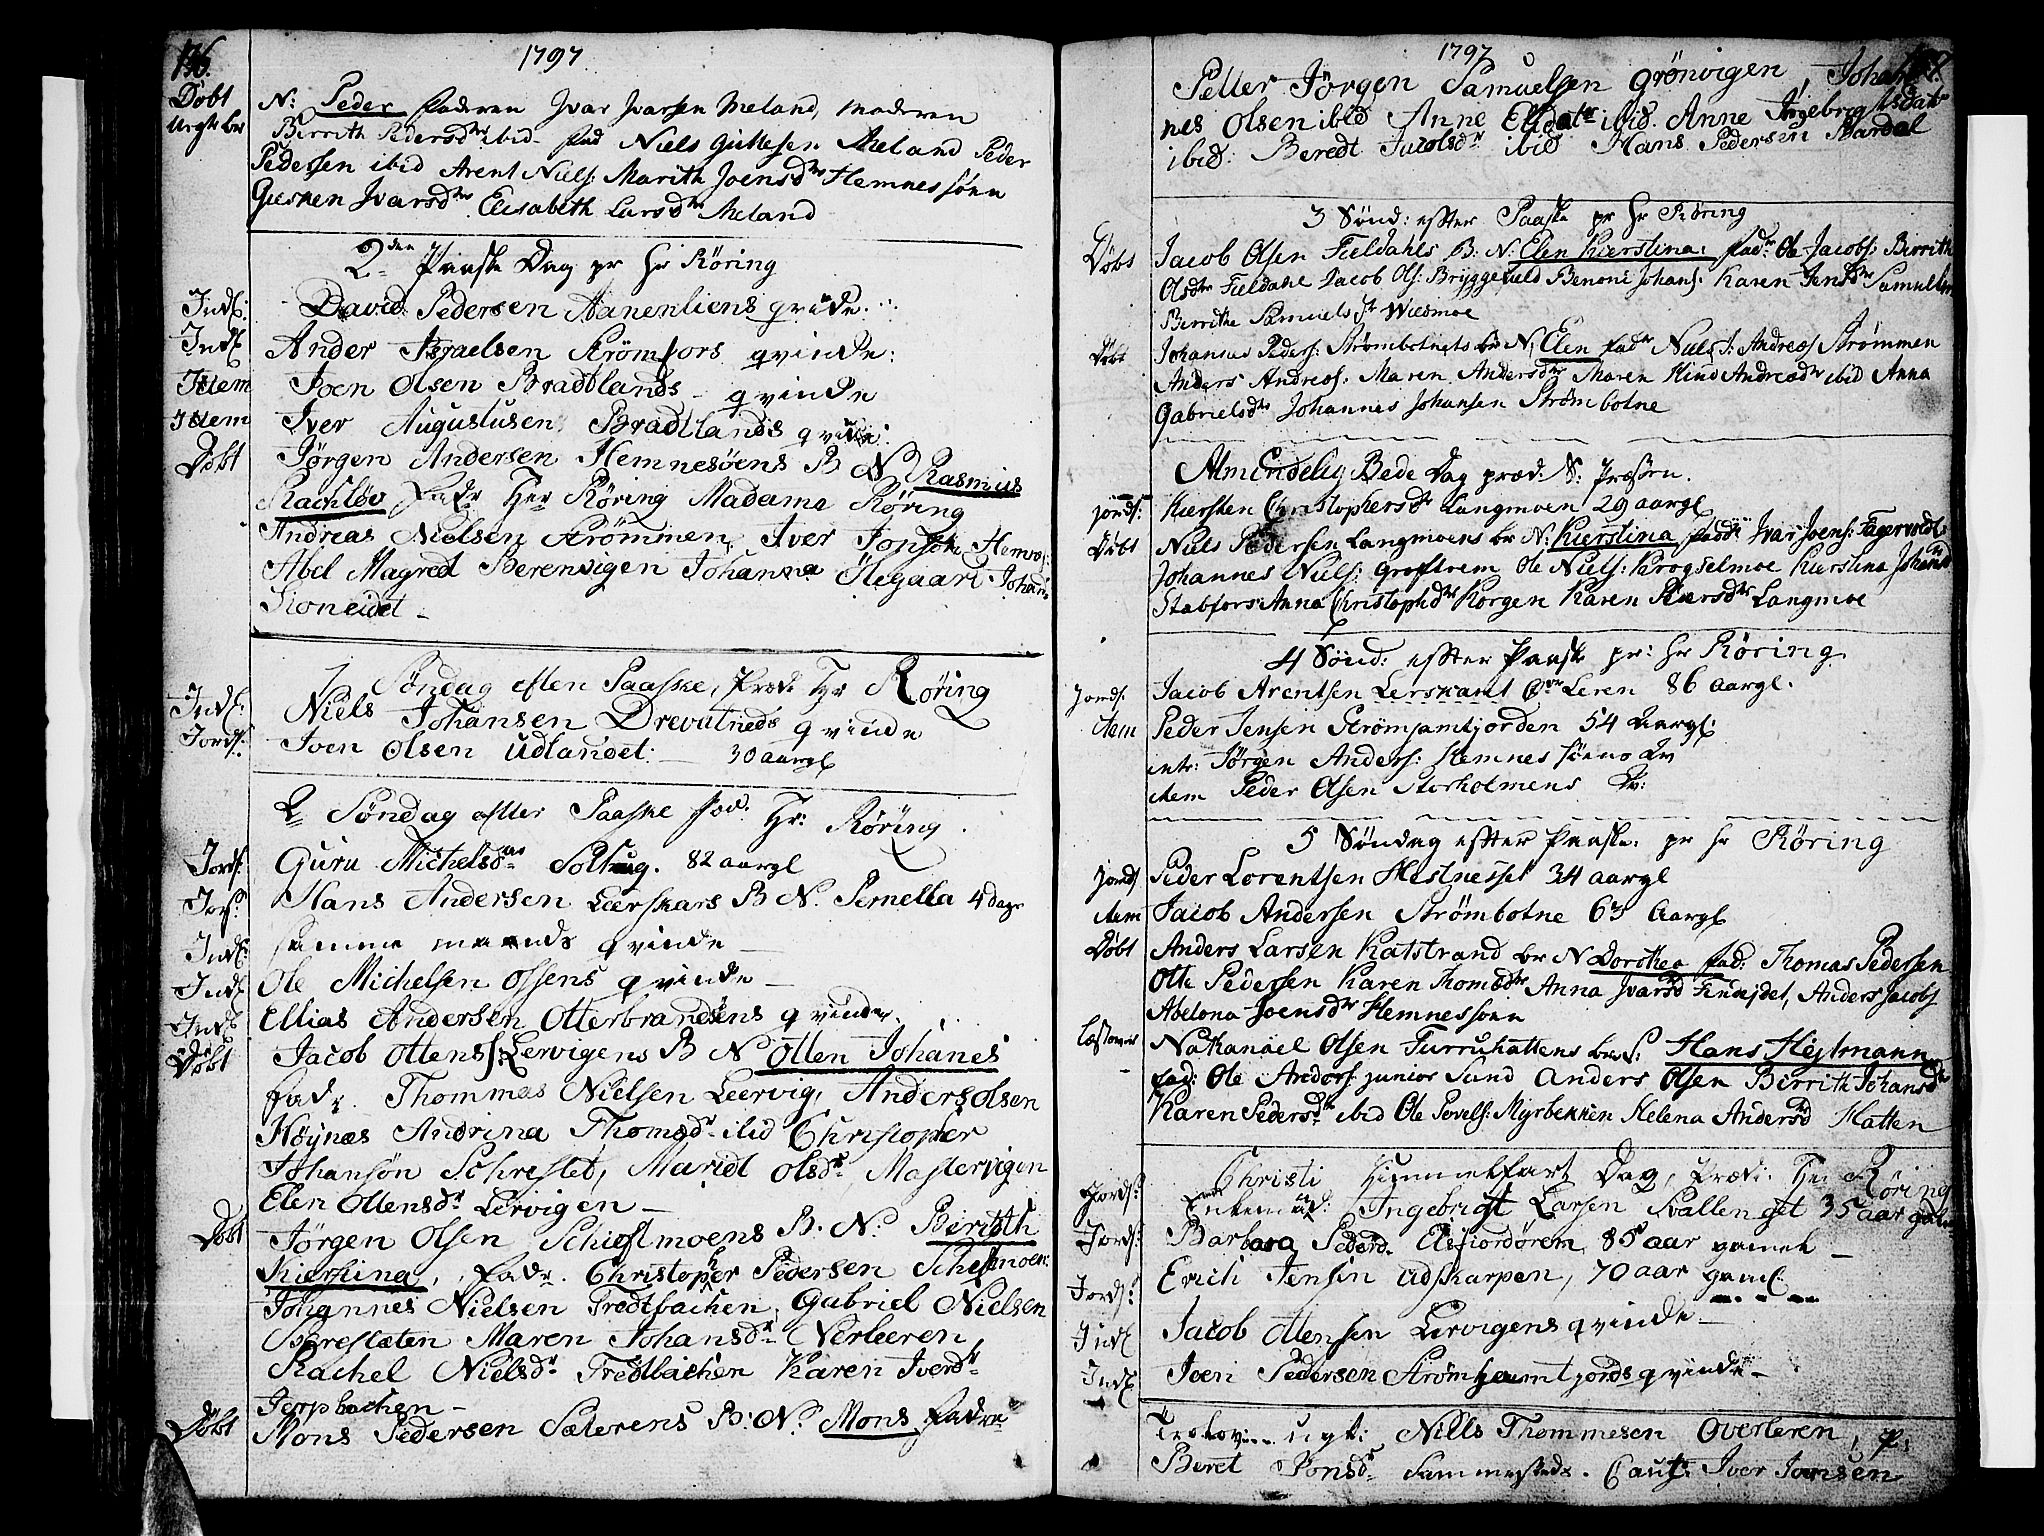 136.
1797
Döbt N: Peder faderen Jvar Jvarsen Meland, moderen
Birrith Pedersdtr ibid. fad Niels Giittesen Meland Peder
Pedersen ibid Arent Niels: Marith Joensdtr Hemnessöen
Giernen Jvarsdtr Elisabeth Larsdtr Meland
2den Paaske Dag pr Hr Röring
Indl: David Pedersen Aanenliens qvinde:
Indl Ander Israelsen Strömfors qvinde:
Item Joen Olsen Bradtlands qvinde
Item Iver Augustusen Bradtlands qvinde:
Döbt Jörgen Andersen Hemnesöens B N Rasmus
Rachlöv Fadr Her Röring Madame Röring
Andreas Nielsen Strömmen, Iver Hemnes:
Abel Magred Berenvigen Johanna Ölegaard Johans
Stoneidet
1 Söndag eften Paaske, Præd: Hr Röring
Indl: Niels Johansen Drevatneds qvinde
Jords: Joen Olsen Udlandet: 30 aargl
2 Söndag efter Paaske Præd. Hr: Röring
Jords. Guru Michelsdtr 82 aargl
Jors: Hans Andersen Leerskars B N. Pernella 4 dage
Indl: samme mands qvinde
Indl Ole Michelsen Ossens qvinde
Indl Ellias Andersen Otterbrandsens qvinde.
Döbt Jacob Ottens: Lervigens B N Otten Johanes
fadr. Thommas Nielsen Leervig, Anders Olsen
Höynæs Andrina Thomsdr ibid Christopher
Johansön Maridt Olsdr Mastervigen
Elen Ottensdr Lervigen
Döbt Jörgen Olsen Schieflmoens B. N. Berith
Kierstina, Fadr. Christopher Pedersen
Johannes Nielsen Tredtbachen, Gabriel Nielsen
Maren Johansdr Nerleeren,
Rachel Nielsdr Tredtbachen Karen Iverdr
Jerpbachen
Döbt Mons Pedersen Sæterens B: N. Mons Fadr
1797
Petter Jörgen Samuelsen Grönvigen, Johan
nes Olsen ibid Anne ibid. Anne Ingebrigtsdatr
ibid: Beredt Jacobsdr ibid Hans Pedersen Bardal
3 Sönd: effter Paaske pr Hr Röring
Döbt Jacob Olsen Fieldahls B: N: Elen Kierstina: fadr Ole Jacobs: Birrith
Olsdtr Fieldahl Jacob Ols: Bryggefield Benoni Johans: Karen Jensdtr
Birrithe Samuels dr
Döbt Johannes Peders: Strömbotnets br N: Elen fadr Niels J: Andreas Strömmen
Anders Andreas: Maren Andersdtr Maren Hind Andreædtr ibid Anna
Gabrielsdtr Johannes Johansen Strömbotne
Almindelig Bede Dag præd: S: Præsten.
jords: Kiersten Christophersdtr Langmoen 29 aargl
Döbt Niels Pedersen Langmoens br N: Kierstina fadr Ivar Joens: Fagervold:
Johannes Niels: Ole Niels: Krogselmoe Kierstina
Stabfors: Anna Christophdtr Korgen Karen Langmoe
4 Sönd: effter Paaske pr: Hr Röring
Jords. Jacob Arentsen Lerskard Leren 86 aargl.
item Peder Jensen 54 aargl:
intr: Jörgen Anders: Hemnessöens Qv
item Peder Olsen Storholmens Qv:
5 Söndag effter Paaske: pr Hr Röring
Jords Peder Lorentsen Hestnesset 34 aargl
item Jacob Andersen Strömbotne 63 Aargl
Döbt Anders Larsen Katstrand br N Dorthea fad: Thomas Pedersen
Otte Pedersen Karen Thomædtr Anna Jvarsd Finnejdet, Anders Jacobs
Abelona Joensdtr Hemnessöen
Nathanael Olsen Furruhattens br: Hans Hejtmann
fad: Ole Anders: junior Sund Anders Olsen Birrith Johansdtr
Karen Pedersdtr ibid Ole Povels: Myrbekken Helena Andersd Hatten
Christi Himmelfart Dag, Præd: Her Röring
Jords: Enkemand: Ingebrigt Larsen 35 aar
Jords: Barbara Pederd. Elsfiordören, 85 aar gamel
Jords: Erich Jensen Udskarpen, 70 aar gaml:
Indl Jacob Ottensen Lervigens qvinde
Indl Joen Pedersen qvinde
Trolov ugt: Nills Thommesen Overleren, P:
Beret Jonsdr Sammesteds. Caut: Iver Joensen